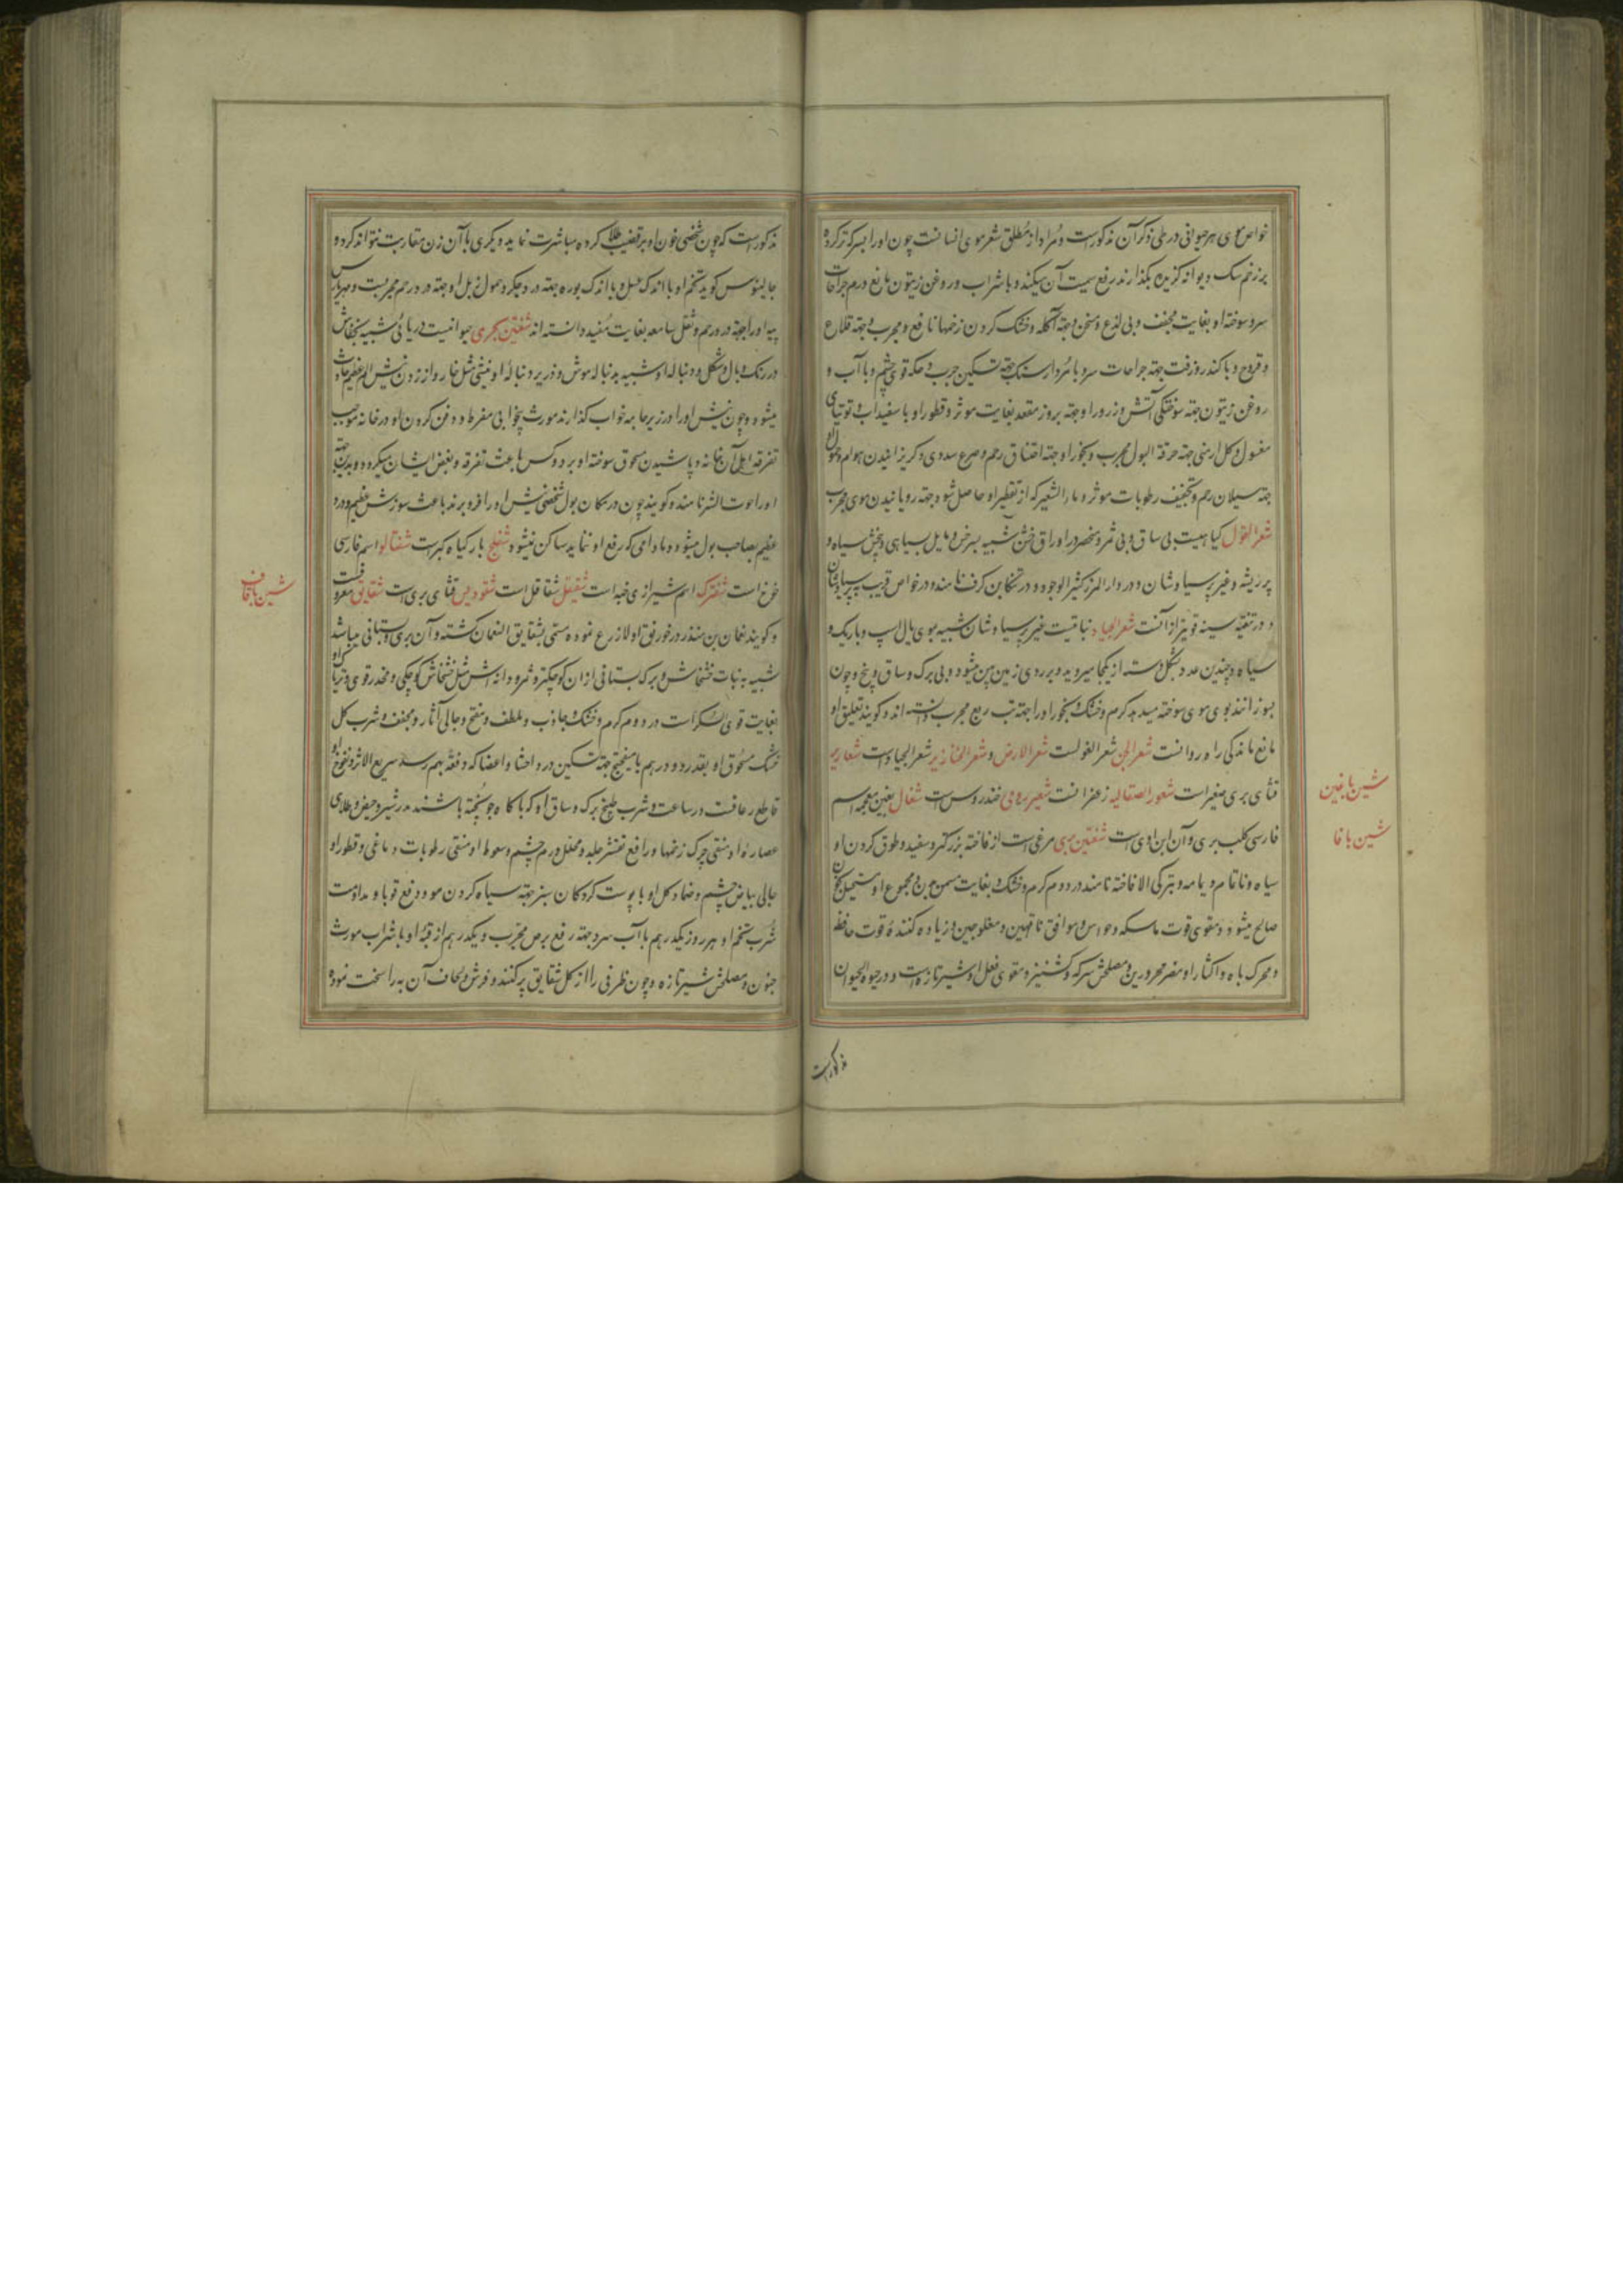 خواص موی هر حیوانی در طی ذکر آن مذکورست و مراد از مطلق شعر موی انسانست چون او را بسرکه تر کرده
بر زخم سک دیوانه کزیده بکذارند رفع سمیت آن میکند و با شراب و روغن زیتون مانع ورم جراحات
سر و سوخته او بغایت مجفف و بی لذع و مسخن و جهته آکله و خشک کردن زخمها نافع و مجرب و جهته قلاع
و قروح و با کندر و زفت جهته جراحات سر و با مردارسنک جهته تسکین جرب و حکه قوی چشم و با آب و
روغن زیتون جهته سوختکی آتش و ذرور او جهته بروز مقعد بغایت موثر و قطور او با سفیداب و توتیای
مغسول و کل ارمنی جهته حرقة البول مجرب و بخور او جهته اختناق رحم و صرع سددی و کریزانیدن هوام و حمول او
جهته سیلان رحم و تجفیف رطوبات موثر و ماء الشعیر که از تقطیر او حاصل شود جهته رویانیدن موی مجرب
شعر الغول کیاهیست بی ساق و بی ثمر و منحصر در اوراق خشن شبیه بسرخس و مایل بسیاهی و بیخش سیاه و
پر ریشه و غیر پرسیاوشان و در دار المرز کثیر الوجود و در تنکابن کرف نامند و در خواص قریب به پرسیاوشان
و در تنقیه سینه قویتر از آنست شعر الجیاد نباتیست غیر پرسیاوشان شبیه بموی یال اسپ و باریک و
سیاه و چندین عدد بشکل دسته از یکجا میروید و بر روی زمین پهن میشود و بی برک و ساق و بیخ و چون
بسوزانند بوی موی سوخته میدهد کرم و خشک و بخور او را جهته تب ربع مجرب دانسته اند و کویند تعلیق او
مانع ماندکی راه رو انست شعر الجن شعر الغولست شعر الارض و شعر الخنازیر شعر الجیاد است شعاریر
قثای بری صغیر است شعور الصقالیه زعفرانست شعیر رومی خندروس است شغال بغین معجمه اسم
فارسی کلب بری و آن ابن اوی است شفنین بری مرغی است از فاخته بزرکتر و سفید و طوق کردن او
سیاه و ناتمام و یامه و بترکی الا فاخته نامند در دوم کرم و خشک و بغایت مسمن بدن و مجموع او مستحیل بخون
صالح میشود و مقوی قوت ماسکه و حواس و موافق ناقهین و مفلوجین و زیاده کننده قوت حافظه
و محرک باه و اکثار او مضر محرورین و مصلحش سرکه و کشنیز و مقوی فعل او شیر تازه است و در حیوة الحیوان
مذکور است
شین با غین
شین با فا
مذکور است که چون شخصی خون او بر قضیب طلا کرده مباشرت نماید دیکری با آن زن مقاربت نتواند کرد و
جالینوس کوید تخم او با اندک عسل و یا اندک بوره جهته درد جکر و حمول زبل او جهته درد رحم مجربست و مهراریس
پیه او را جهته درد رحم و ثقل سامعه بغایت مفید دانسته اند شفنین بحری حیوانیست دریائی شبیه بخفاش
در رنک و بال و شکل و دنباله او شبیه بدنباله موش و در زیر دنباله او نیشی مثل خار و از زدن نیش الم عظیم حادث
میشود و چون نیش او را در زیر جامه خواب کذارند مورث بیخوابی مفرط و دفن کردن او در خانه موجب
تفرقه اهل آن خانه و پاشیدن مسحوق سوخته او بر دو کس باعث تفرقه و بغض ایشان میکردد و بدین جهته
او را حوت الشر نامند و کویند چون در مکان بول شخصی نیش او را فرو برند باعث سوزش عظیم و درد
عظیم بصاحب بول میشود و مادامی که رفع او نماید ساکن نمیشود شفلح بار کیاه کبر است شفتالو اسم فارسی
خوخ است شفترک اسم شیرازی خبه است شقیقل شقاقل است شقودیس قثای بری است شقایق معروفست
و کویند نعمان بن منذر در خورنق اولا زرع نموده مسمی بشقایق النعمان کشته و آن بری و بستانی میباشد
شبیه به نبات خشخاش و برک بستانی از ان کوچکتر و ثمر و دانه اش مثل خشخاش کوچکی و مخدر قوی و تریاک او
بغایت قوی السکر است در دوم کرم و خشک و جاذب و ملطف و مفتح و جالی آثار و مجفف و شرب کل
خشک مسحوق او بقدر دو درهم با میفختج جهته تسکین درد احشا و اعضا که دفعة بهم رسد سریع الاثر و نفوخ او
قاطع رعافست در ساعت و شرب طبیخ برک و ساق او که با کاه جو پخته باشند مدر شیر و حیض و طلای
عصاره او منقی چرک زخمها و رافع تقشر جلد و محلل ورم چشم و سعوط او منقی رطوبات دماغی و قطور او
جالی بیاض چشم و ضماد کل او با پوست کردکان سبز جهته سیاه کردن مو و دفع قوبا و مداومت
شرب تخم او هر روز یکدرهم با آب سرد جهته رفع برص مجرب و یکدرهم از قبه او با شراب مورث
جنون و مصلحش شیر تازه و چون ظرفی را از کل شقایق پر کنند و فرش و لحاف آن به راسخت نموده
شین با قاف